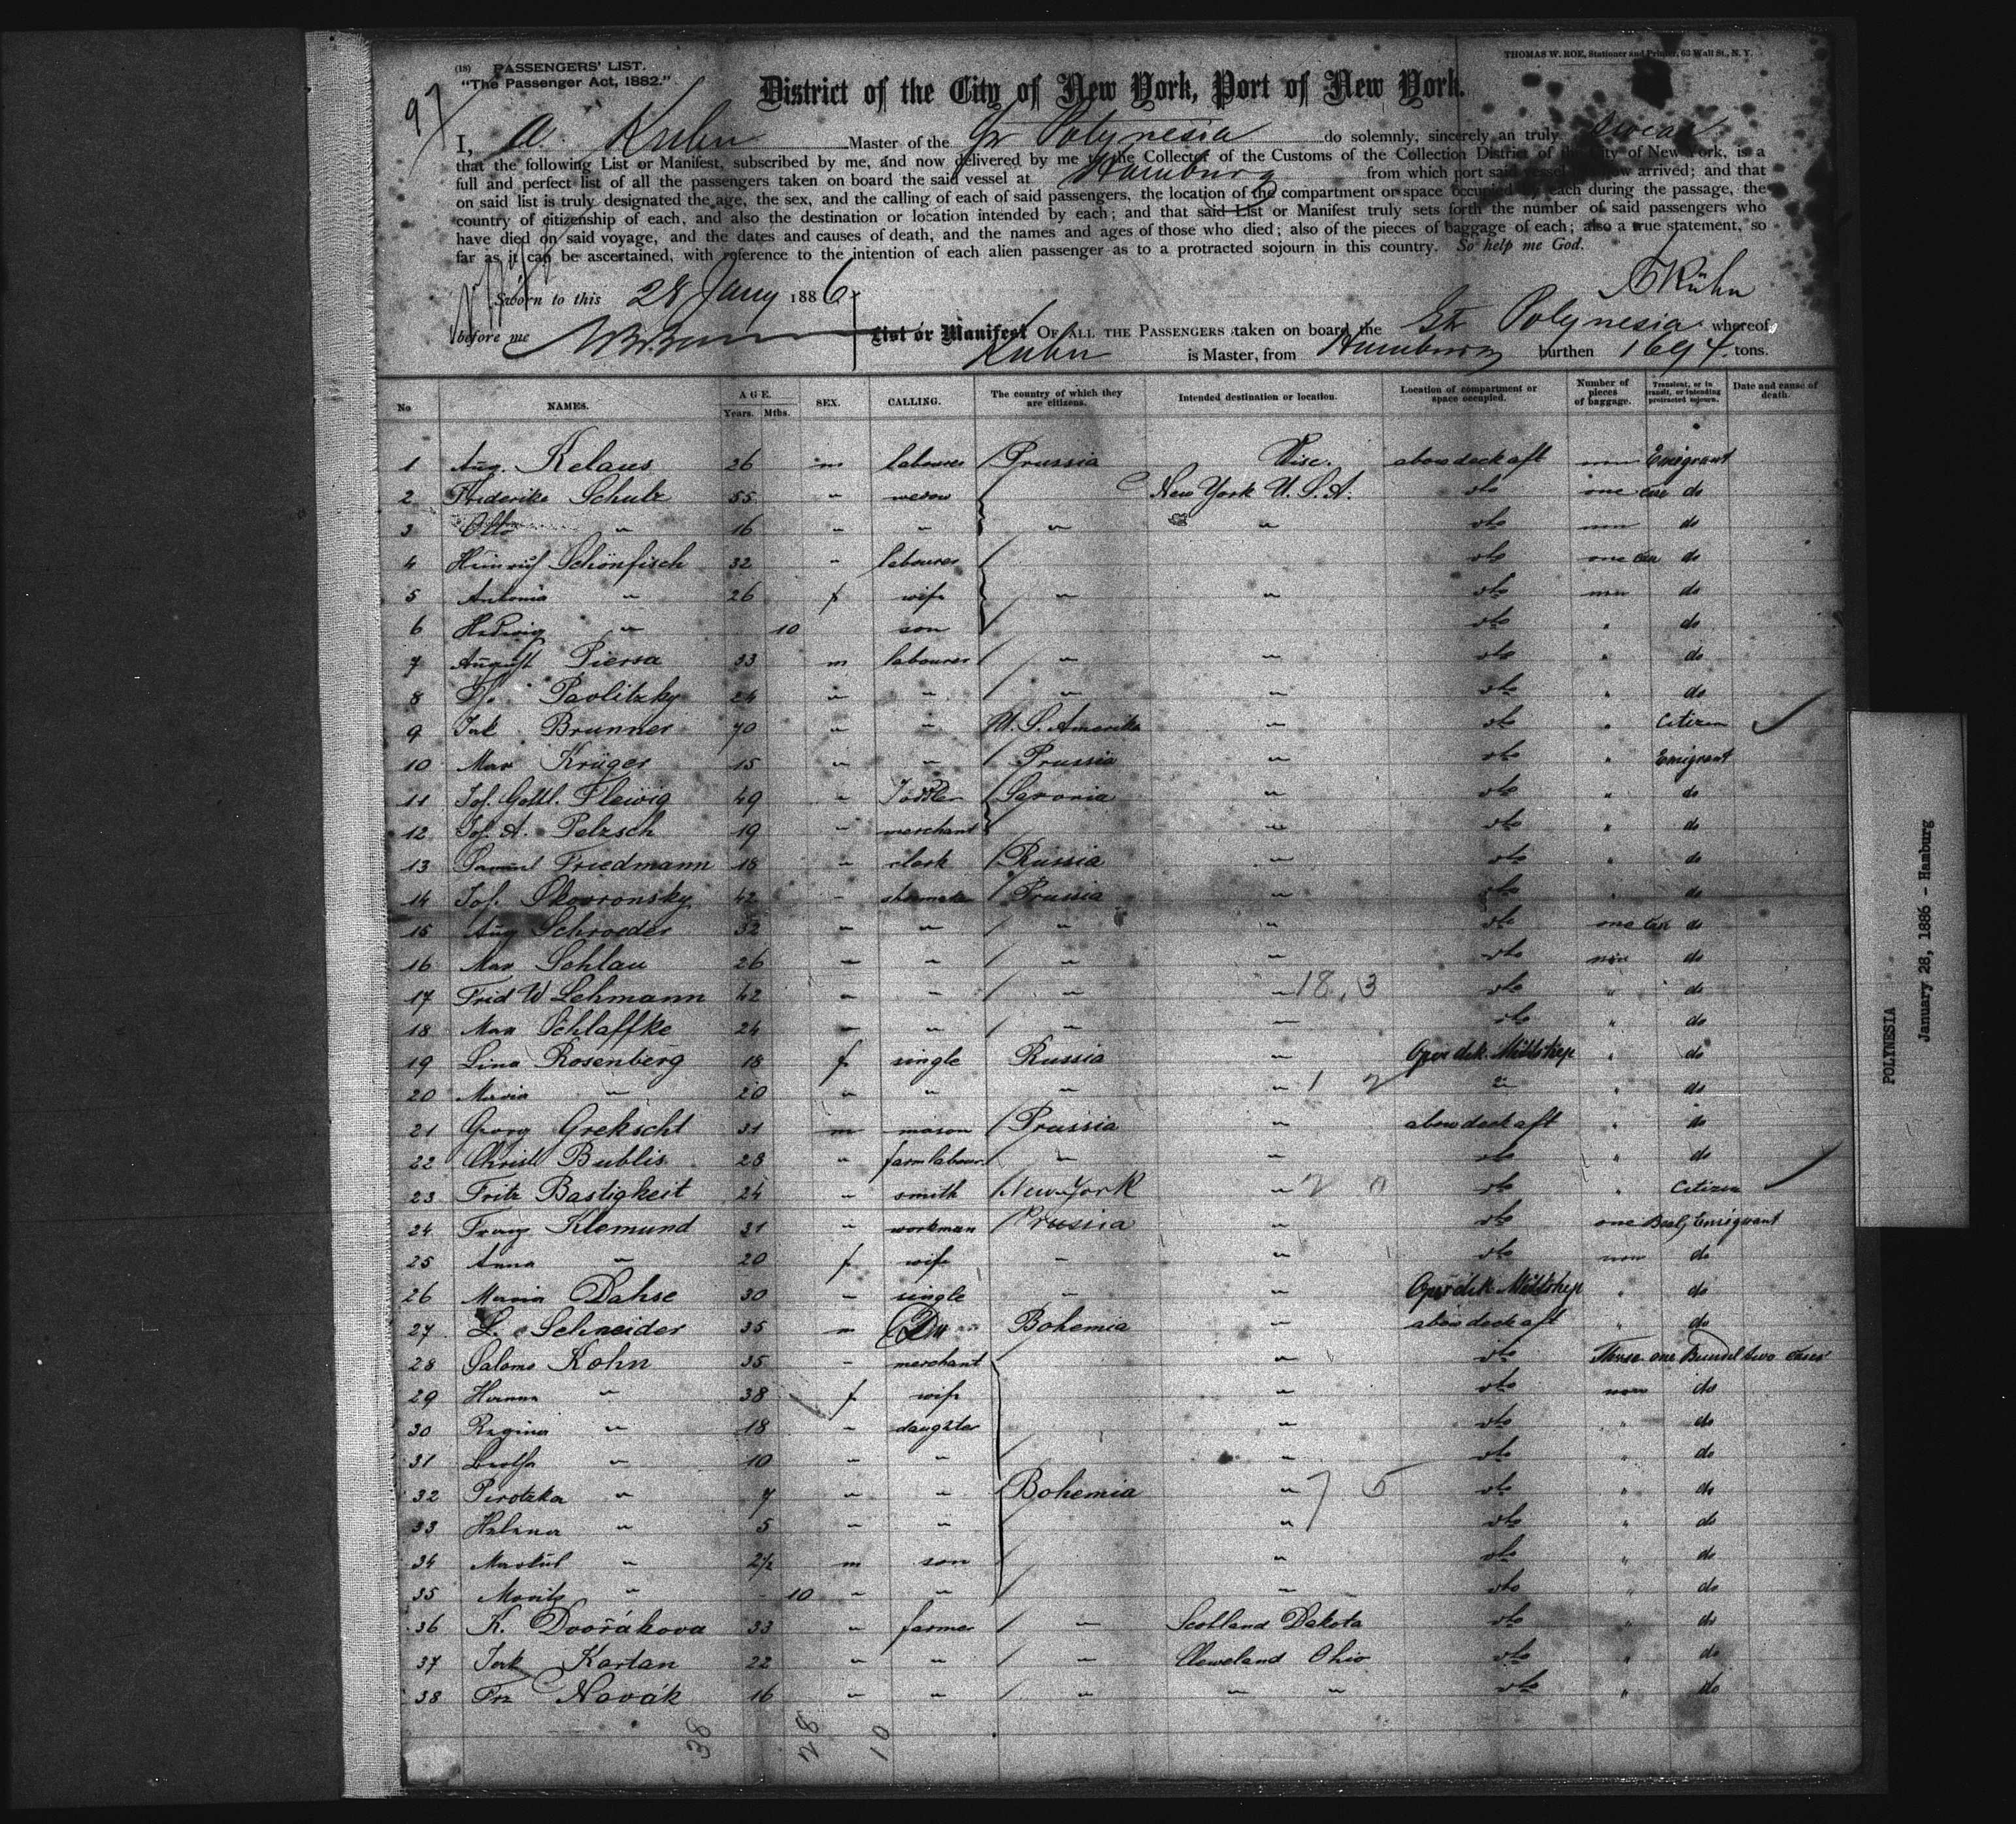 (18) PASSENGERS' LIST.
"The Passenger Act, 1882."
THOMAS W. ROE, Stationer and Printer, 63 Wall St., N. Y.
97
District of the City of New York, Port of New York.
I, A. Kuhn Master of the Gr Polynesia do solemnly, sincerely an truly swear
that the following List or Manifest, subscribed by me, and now delivered by me to the Collector of the Customs of the Collection District of the City of New York, is a
full and perfect list of all the passengers taken on board the said vessel at Hamburg from which port said vessel has now arrived; and that
on said list is truly designated the age, the sex, and the calling of each of said passengers, the location of the compartment or space occupied by each during the passage, the
country of citizenship of each, and also the destination or location intended by each; and that said List or Manifest truly sets forth the number of said passengers who
have died on said voyage, and the dates and causes of death, and the names and ages of those who died; also of the pieces of baggage of each; also a true statement, so
far as it can be ascertained, with reference to the intention of each alien passenger as to a protracted sojourn in this country. So help me God.
Sworn to this 28 Jany 1886 Kühn
before me
List or Manifest OF ALL THE PASSENGERS taken on board the Str Polynesia whereof
Kuhn is Master, from Hamburg burthen 1694 tons.
No NAMES. AGE. Years. Mths. SEX. CALLING. The country of which they are citizens. Intended destination or location. Location of compartment or space occupied. Number of pieces of baggage. Transient, or in transit, or intending protracted sojourn. Date and cause of death.
1 Aug. Kelaus 26 m labourer Prussia Wisc. abowdeck aft non Emigrant
2 Friderike Schulz 55 " New York U.S.A. dto one do
3 Otto " 16 " " " " dto non do
4 Heinrich Schönfisch 32 " labourer dto one do
5 Antonia " 26 f wife " " dto non do
6 Hedwig " 10 son dto " do
7 August Piersa 33 m labourer " " dto " do
8 Pavlitzky 24 " " " " dto " do
9 Jak Brunner 70 " " U. S. Amerika " dto " Citizen
10 Max Krüger 15 " " Prussia " dto " Emigrant
11 Joh. Gottl. Fleivig 49 " Saxonia " dto " do
12 Joh. A. Pelzsch 19 " merchant " dto " do
13 Samuel Friedmann 18 " clerk Russia " dto " do
14 Joh. Skovronsky 42 " Prussia " dto " do
15 Aug Schroeder 32 " " " " dto one do
16 Max Schlau 26 " " " " dto non do
17 Frid W Lehmann 42 " " " " 18, 3 dto " do
18 Max Schlaffke 24 " " " " dto " do
19 Lina Rosenberg 18 f single Russia " " do
20 Maria " 20 " " " " 1 2 " " do
21 Georg Grekscht 31 m mason Prussia " abowdeck aft " do
22 Christ Bublis 28 " farmlabour " " dto " do
23 Fritz Bastigkeit 24 " smith New York " 2 0 dto " Citizen
24 Franz Klemund 31 " workman Prussia " dto one Emigrant
25 Anna " 20 f wife " " dto non do
26 Maria Dahse 30 " single " " " do
27 L. Schneider 35 m Bohemia " abowdeck aft " do
28 Salomo Kohn 35 " merchant " dto one Bundel two cases
29 Hanna " 38 f wife " dto non do
30 Regina " 18 " daughter " dto " do
31 " 10 " " " dto " do
32 Pirotzka " 7 " " Bohemia " 7 5 dto " do
33 Helena " 5 " " " dto " do
34 " 2½ m son " dto " do
35 Moritz " 10 " " " dto " do
36 K. Dvořákova 33 " farmer " Scotland Dakota dto " do
37 Jak Kartan 22 " " " Cleveland Ohio dto " do
38 Frz Novák 16 " " " " " dto " do
38 28 10
POLYNESIA
January 28, 1886 - Hamburg